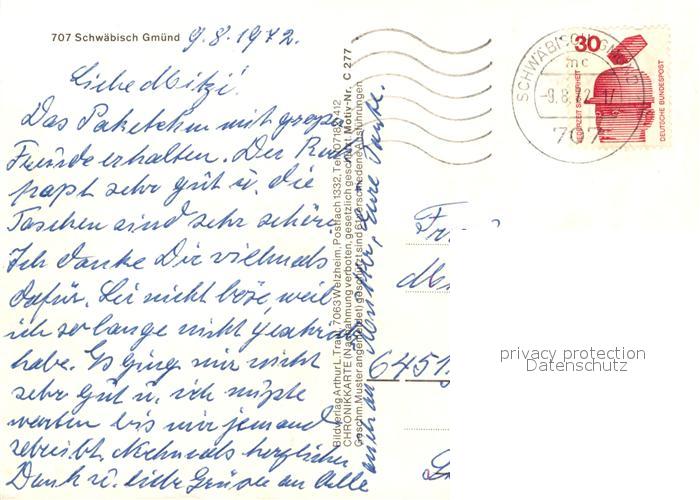 707 Schwäbisch Gmünd 9.8.1972.
Liebe Mitzi!
Das Paketchen mit großer
Freude erhalten. Der Rock
paßt sehr gut u. die
Taschen sind sehr schön
Ich danke Dir vielmals
dafür. Sei nicht böse, weil
ich so lange nicht geschrieben
habe. Es ging mir nicht
sehr gut u. ich mußte
warten bis mir jemand
schreibt. Nochmals herzlichen
Dank u. liebe Grüße an Alle
auch an Eure Tante.
Bildverlag Arthur L. Traub, 7063 Welzheim, Postfach 1332, Tel. 07182/412
CHRONIKKARTE (Nachahmung verboten, gesetzlich geschützt) Motiv-Nr. C 277
Geschm. Muster angemeldet) geschützt sind 6 verschiedene Ausführungen
SCHWÄBISCH GMÜND
mc
-9.8.72-17
707
30
JEDERZEIT SICHERHEIT
DEUTSCHE BUNDESPOST
Fr
6451
privacy protection
Datenschutz